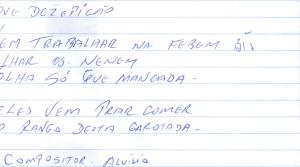 QUE DEZEPIÇÃO
EM TRABALHAR NA FEBEM BIS
LHAR OS NENEM
OLHA SÓ QUE MANCADA.
ELES VEM TRAR COMER
O RANGO DESTA GAROTADA.
COMPOSITOR. ALUISIO